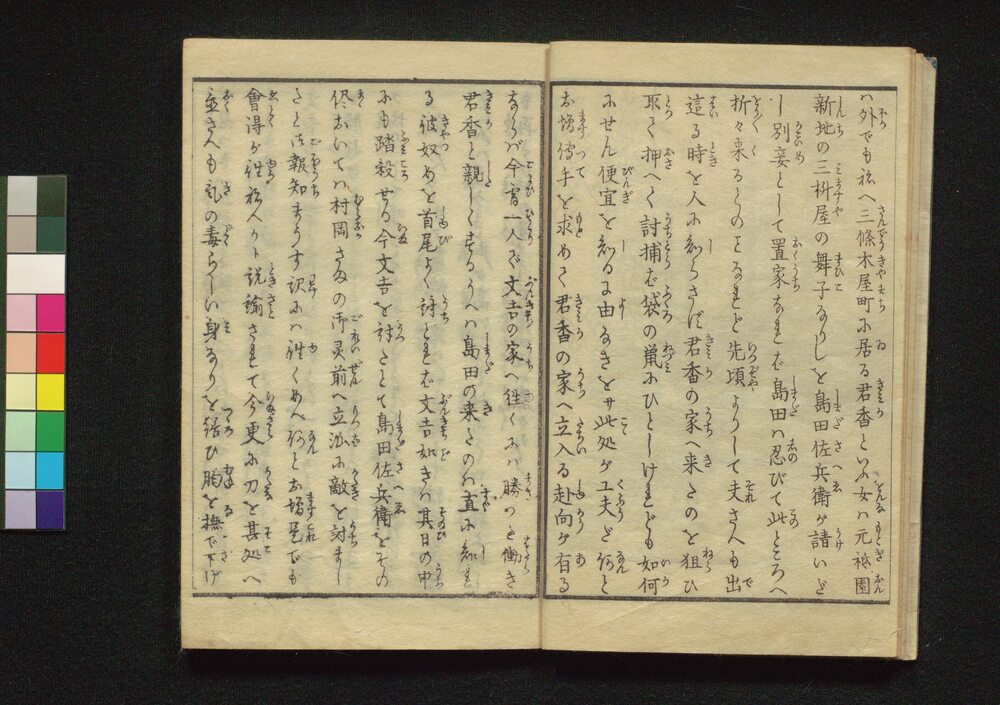 ハ外でも無へ三條木屋町に居る君香といふ女ハ元祗園
新地の三枡屋の舞子なりしを島田佐兵衛が請いだ
し別妾として置家なれバ島田ハ忍びて此ところへ
折々来るとのことなれど先頃よりして夫さへも出
這る時を人に知らさバ君香の家へ来たのを狙ひ
取て押へて討捕バ袋の鼠にひとしけれども如何
にせん便宜を知るに由なきをサ此処が工夫と何と
お増傳手を求めて君香の家へ立入る赴向が有る
ならバ今宵一人で文吉の家へ往くにハ勝つた働き
君香と親しくするうへハ島田の来たのハ直に知れ
る彼奴めを首尾よく討とれバ文吉如きハ其日の中
にも踏殺せる今文吉を討たとて島田佐兵衛をその
侭おいてハ村岡さまの御灵前へ立派に敵を討まし
たと御報知まうす訳にハ往くめへ何とお増是でも
會得が往ねへかト説諭されて今更に刀を甚処へ
並さんも氣の毒らしい身なりを繕ひ胸を撫で下げ